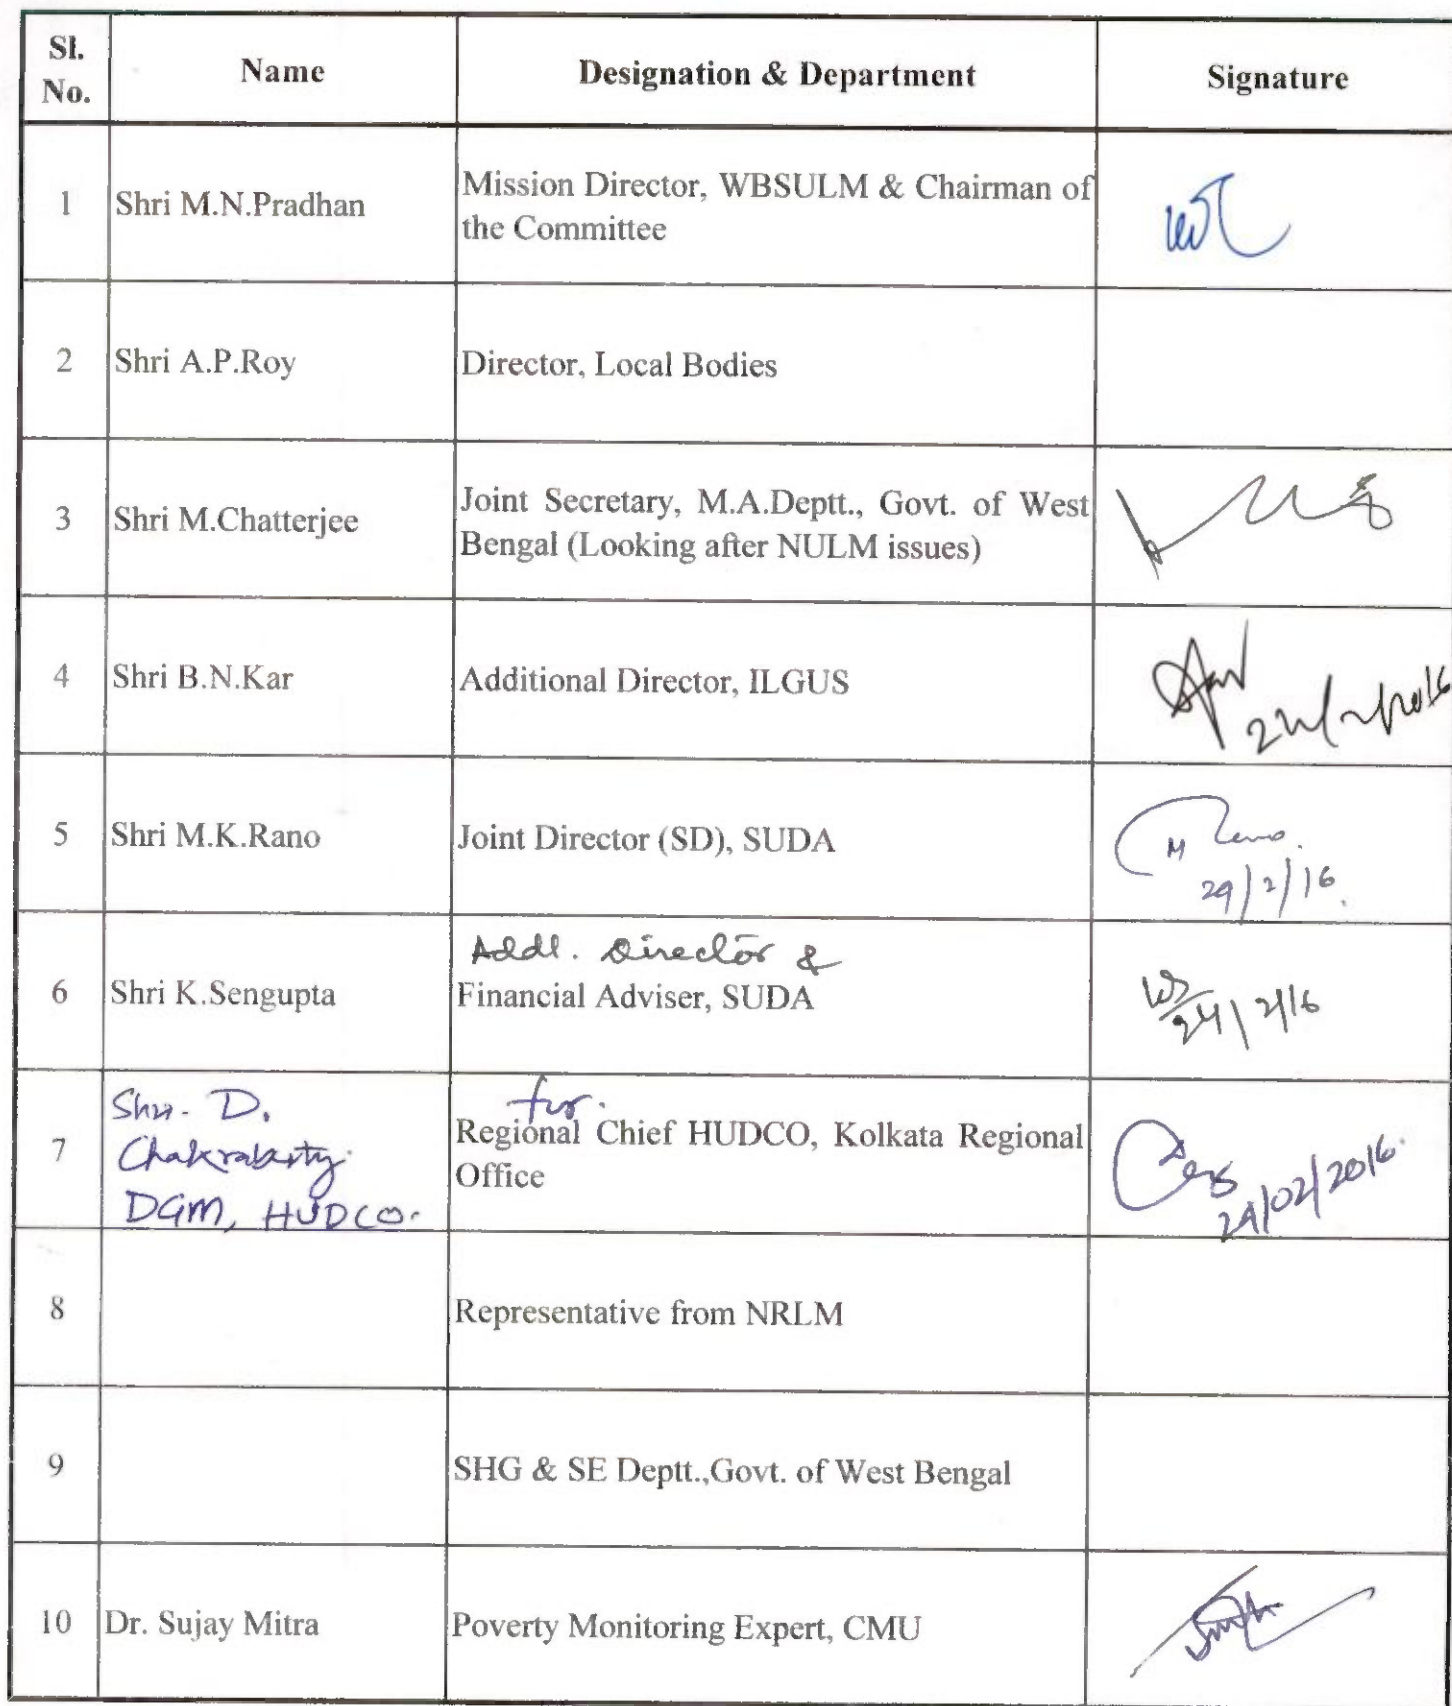 Sl. No. Name Designation & Department Signature
1 Shri M.N.Pradhan Mission Director, WBSULM & Chairman of
the Committee
2 Shri A.P.Roy Director, Local Bodies
3 Shri M.Chatterjee Joint Secretary, M.A.Deptt., Govt. of West
Bengal (Looking after NULM issues)
4 Shri B.N.Kar Additional Director, ILGUS
5 Shri M.K.Rano Joint Director (SD), SUDA M Rano.
29/2/16.
Addl. Director &
6 Shri K.Sengupta Financial Adviser, SUDA
Shri. D. for.
7 Chakraborty Regional Chief HUDCO, Kolkata Regional
DGM, HUDCO. Office
8 Representative from NRLM
9 SHG & SE Deptt.,Govt. of West Bengal
10 Dr. Sujay Mitra Poverty Monitoring Expert, CMU